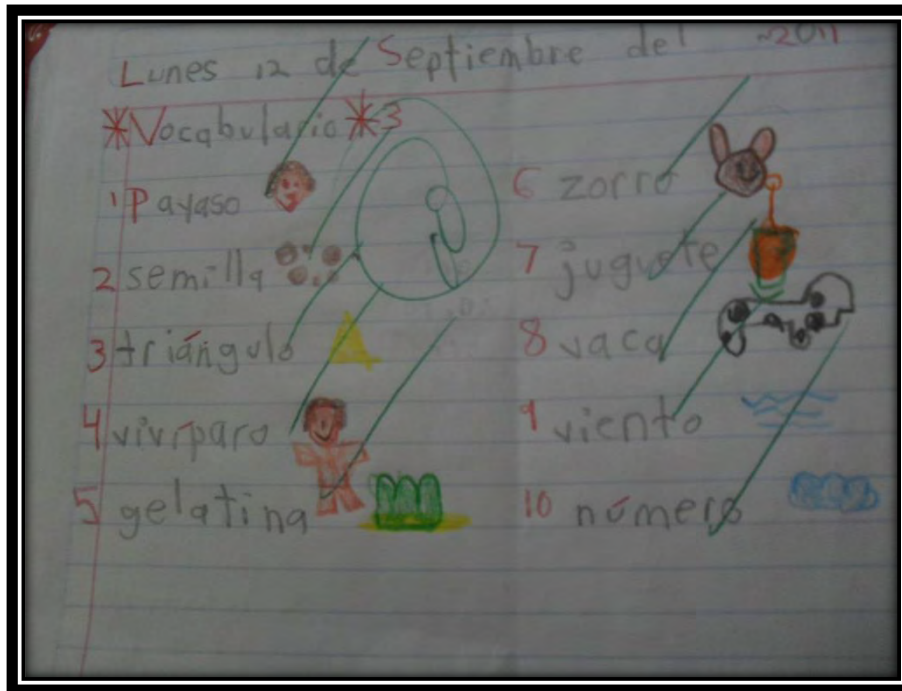 Lunes 12 de Septiembre del 2011
*Vocabulario*3
1 Payaso
2 semilla
3 triángulo
4 vivíparo
5 gelatina
6 zorro
7 juguete
8 vaca
9 viento
10 número